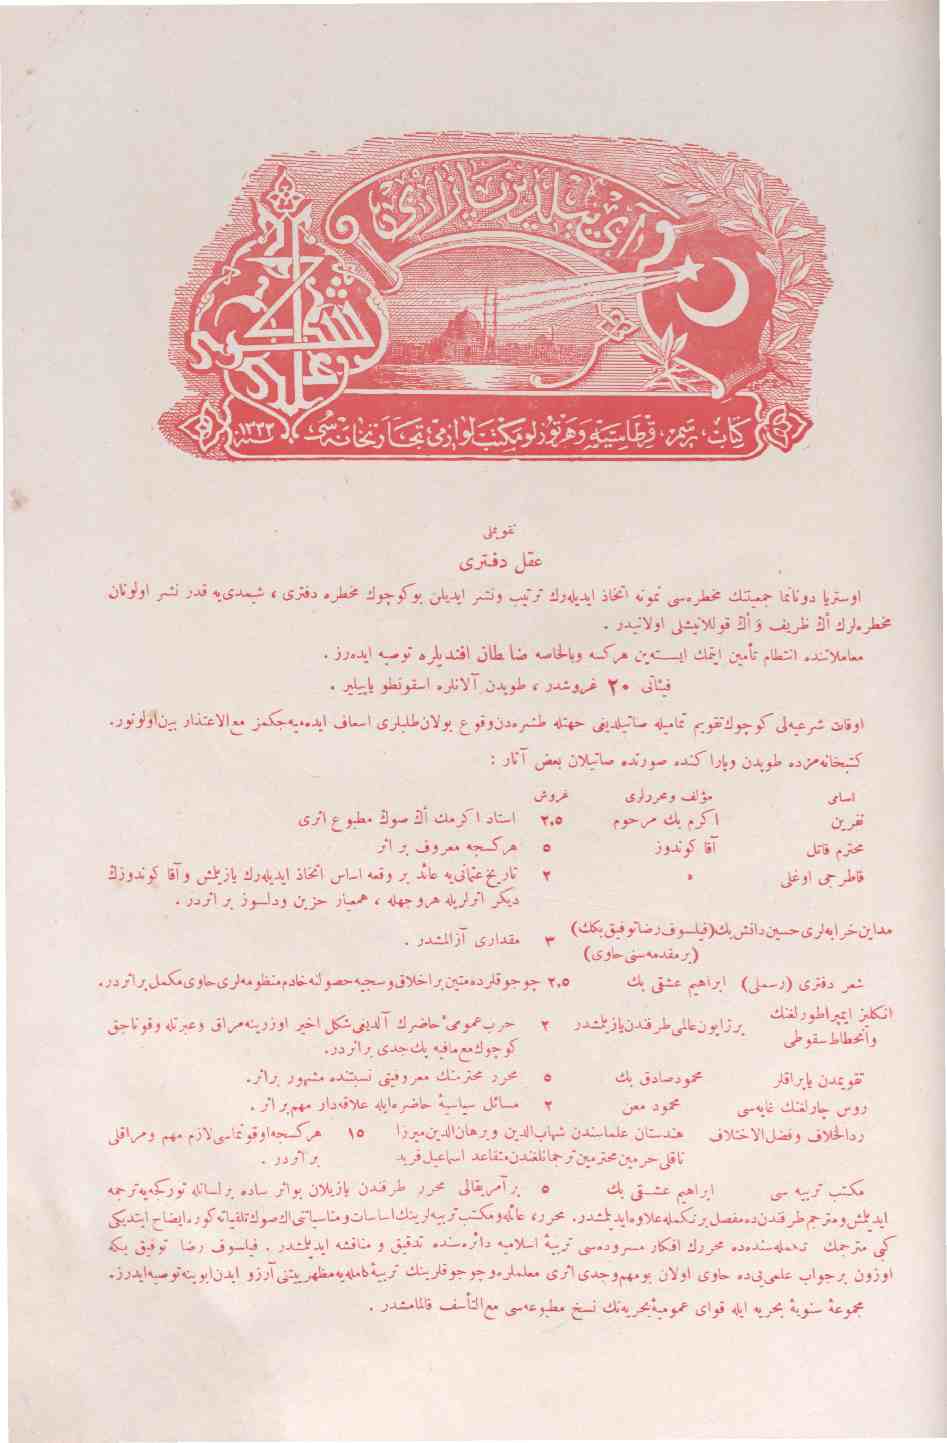 آی ییلدیز پازاری
علی شکری
کتاب، رسم، قرطاسیه و هر تورلو مکتب لوازمی تجارتخانه‌سی
سنه ۱۳۳۲
تقویملی
عقل دفتری
اوستریا دونانما جمعیتنك مخطره‌سی نمونه اتخاذ ایدیله‌رك ترتیب ونشر ایدیلن بوکوچوك مخطره دفتری ، شیمدی‌یه قدر نشر اولونان
مخطره‌لرك أڭ ظریف و أڭ قوللانیشلی اولانیدر .
معاملاتنده انتظام تأمین ایتمك ایسته‌ین هرکسه وبالخاصه ضابطان افندیلره توصیه ایده‌رز .
فیئاتی ۲۰ غروشدر ، طوپدن آلانلره اسقونطو یاپیلیر .
اوقات شرعیه‌لی کوچوك تقویم تمامیله صاتیلدیغی جهتله طشره‌دن وقوع بولان طلبلری اسعاف ایده‌میه‌جکمز مع الاعتذار بیان اولونور.
کتبخانه‌مزده طوپدن وپاراکنده صورتده صاتیلان بعض آثار :
اسامی مؤلف ومحررلری غروش
نفرین اکرم بك مرحوم ۲,۵ استاد اکرمك أڭ صوڭ مطبوع اثری
محترم قاتل آقا کوندوز ۵ هرکسجه معروف بر اثر
قاطرجی اوغلی » ۲ تاریخ عثمانی‌یه عائد بر وقعه اساس اتخاذ ایدیله‌رك یازیلمش وآقا کوندوزڭ
دیکر اثرلریله هروجهله ، همعیار حزین ودلسوز بر اثردر .
مداین خرابه‌لری حسین دانش بك (فیلسوف رضا توفیق بکك) ۳ مقداری آزالمشدر .
(بر مقدمه سنی حاوی)
شعر دفتری (رسملی) ابراهیم عشقی بك ۲,۵ چوجوقلرده متین بر اخلاق وسجیه حصولنه خادم منظومه‌لری حاوی مکمل بر اثردر.
انکلیز ایمپراطورلغنك برزایون عالمی طرفندن یازیلمشدر ۲ حرب عمومی‌ٔ حاضرك آلدیغی شکل اخیر اوزرینه مراق وعبرتله وقوناجق
وانحطاط سقوطی کوچوك مع مافیه پك جدی بر اثردر.
تقویمدن یاپراقلر محمود صادق بك ۵ محرر محترمنك معروفیتی نسبتنده مشهور بر اثر.
روس چارلغنك غایه‌سی محمود معن ۲ مسائل سیاسیهٔ حاضره ایله علاقه‌دار مهم بر اثر .
رد الخلاف وفضل الاختلاف هندستان علماسندن شهاب الدین وبرهان الدین میرزا ۱۵ هرکسجه اوقونماسی لازم مهم ومراقلی
ناقلی حرمین محترمین ترجمانلغندن متقاعد اسماعیل فرید بر اثردر .
مکتب تربیه سی ابراهیم عشقی بك ۵ بر آمریقالی محرر طرفندن یازیلان بواثر ساده بر لسانله تورکجه‌یه ترجمه
ایدیلمش ومترجم طرفندن ده مفصل بر تکمله علاوه ایدیلمشدر. محرر، عائله ومکتب تربیه لرینك اساسات ومناسباتنی اك صوك تلقیاته کوره ایضاح ایتدیکی
کبی مترجمك تکمله‌سنده‌ده محررك افکار مسروده‌سی تربیهٔ اسلامیه دائره‌سنده تدقیق و مناقشه ایدیلمشدر . فیلسوف رضا توفیق بکه
اوزون برجواب علمی‌یی‌ده حاوی اولان بومهم وجدی اثری معلملره وچوجوقلرینك تربیهٔ کامله‌یه مظهریتنی آرزو ایدن ابوینه توصیه ایدرز.
مجموعهٔ سنویهٔ بحریه ایله قوای عمومیهٔ بحریه‌نك نسخ مطبوعه‌سی مع التأسف قالمامشدر .